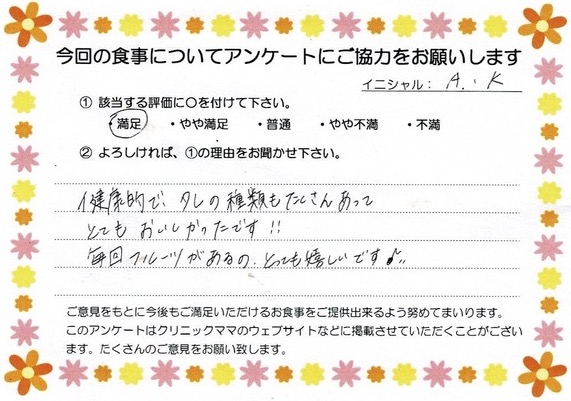 今回の食事についてアンケートにご協力をお願いします
イニシャル： A.・K
① 該当する評価に〇を付けて下さい。
・満足 ・やや満足 ・普通 ・やや不満 ・不満
② よろしければ、①の理由をお聞かせ下さい。
健康的で、タレの種類もたくさんあって
とてもおいしかったです!!
毎回フルーツがあるの、とっても嬉しいです♪
ご意見をもとに今後もご満足いただけるお食事をご提供出来るよう努めてまいります。
このアンケートはクリニックママのウェブサイトなどに掲載させていただくことがござい
ます。たくさんのご意見をお願い致します。